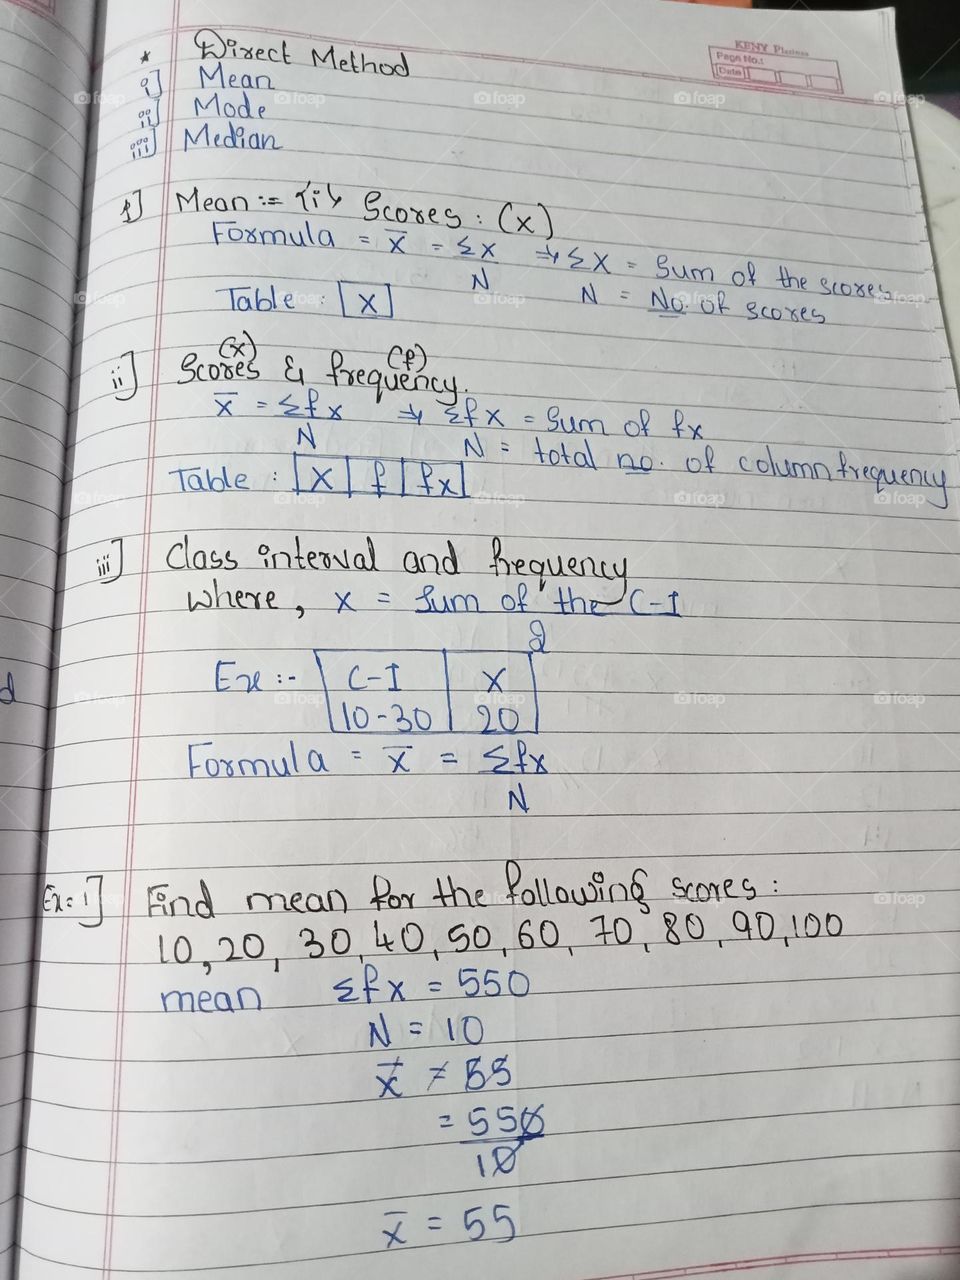 KENY Platinum
Page No.:
Date
* Direct Method
i] Mean
ii] Mode
iii] Median
1] Mean := {i} Scores : (x)
Formula = x̄ = Σx ⇒ Σx = Sum of the scores
N N = No. of scores
Table : [x]
(x) (f)
ii] Scores & frequency.
x̄ = Σfx ⇒ Σfx = Sum of fx
N N = total no. of column frequency
Table : | x | f | fx |
iii] Class interval and frequency
where, x = Sum of the C-I
2
Ex :- C-I x
10-30 20
Formula = x̄ = Σfx
N
Ex:1] Find mean for the following scores :
10, 20, 30, 40, 50, 60, 70, 80, 90, 100
mean Σfx = 550
N = 10
x̄ = 55
= 550
10
x̄ = 55
foap